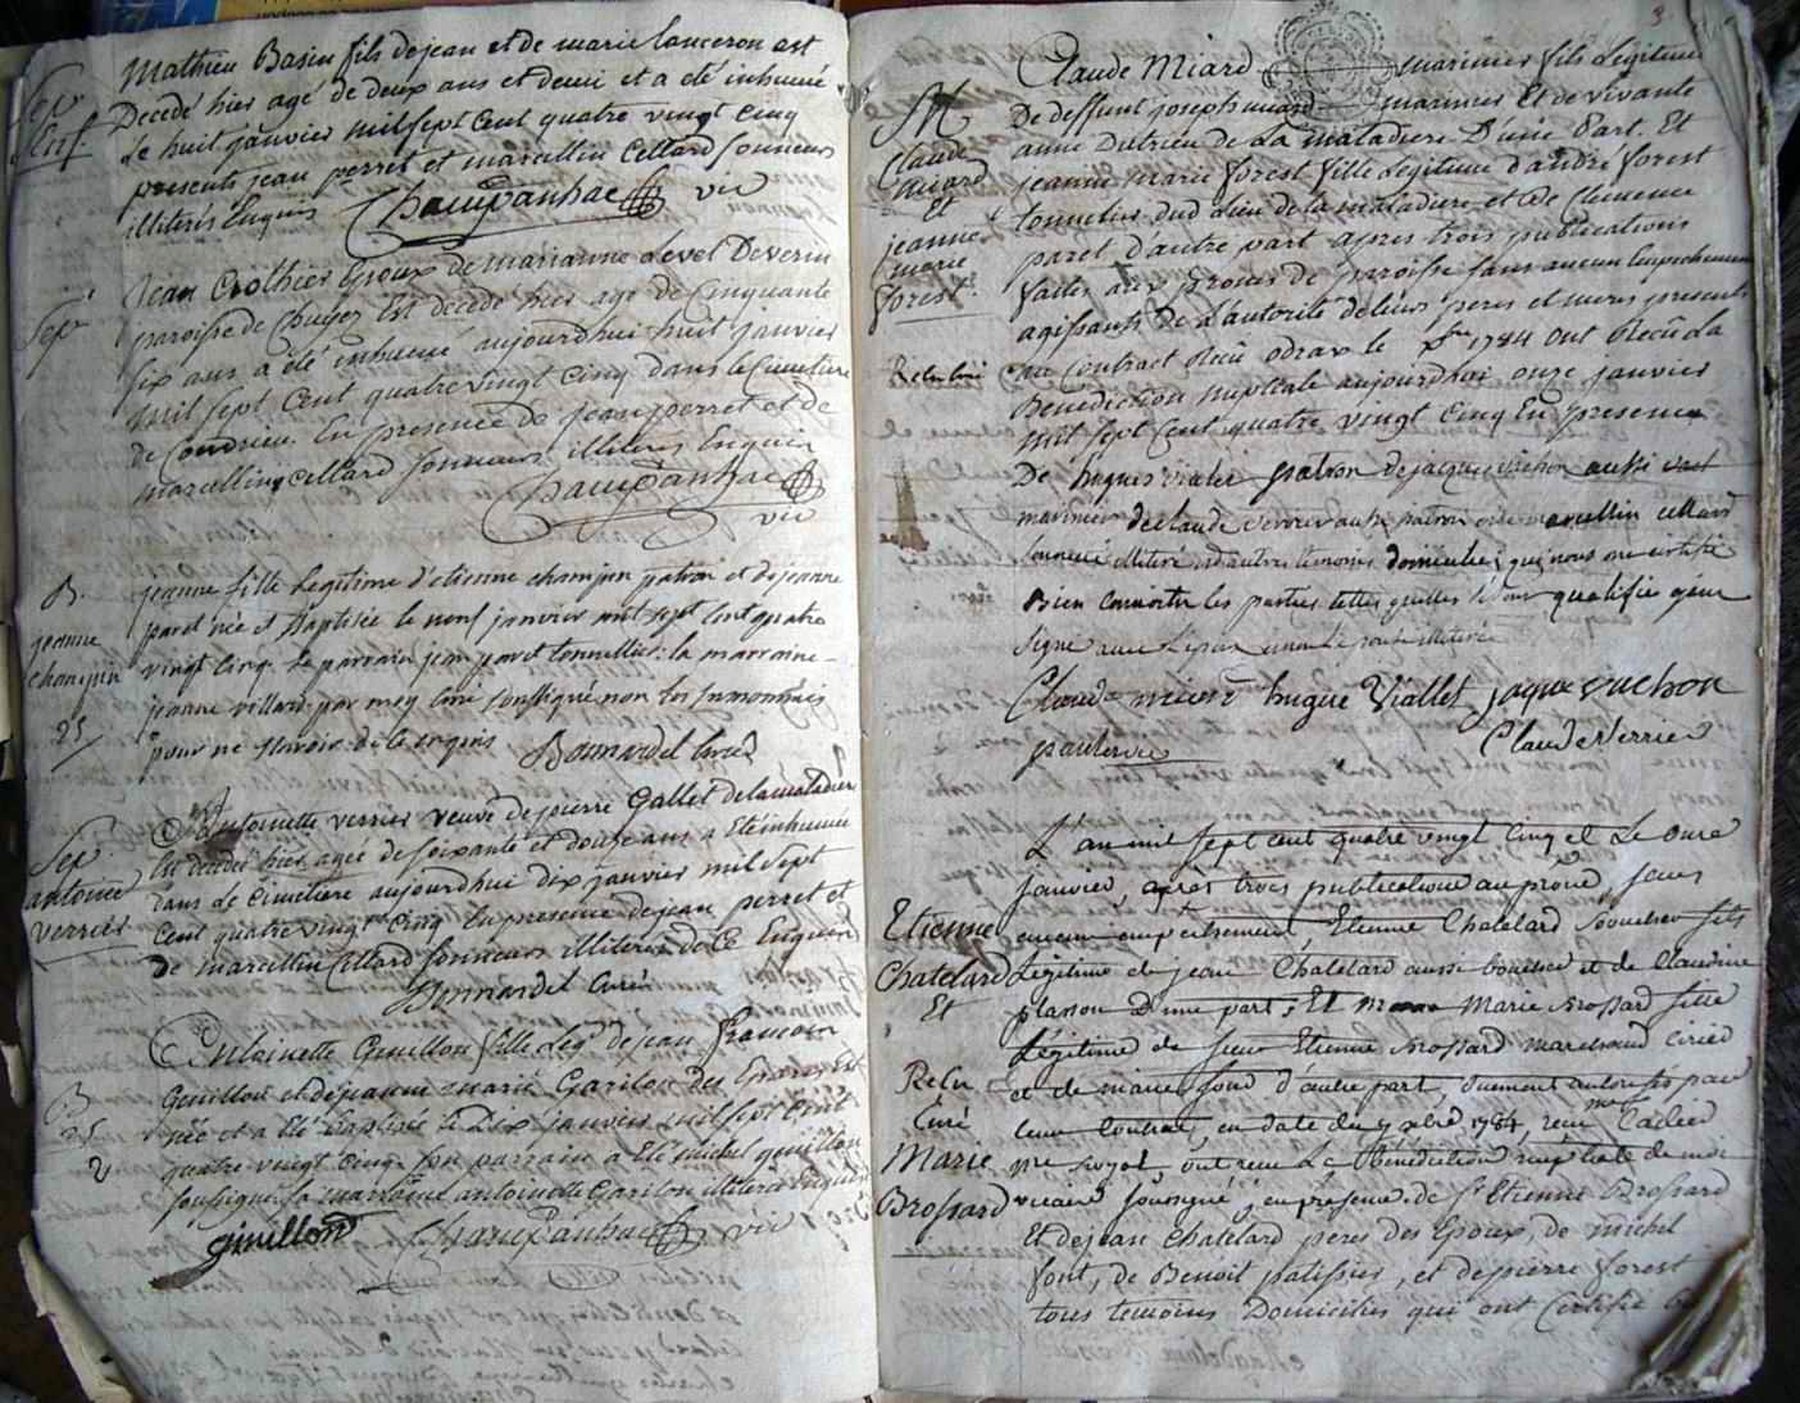 Mathieu Basin fils de jean et de marie lanceron est
Decedé hier agé de deux ans et demi et a eté inhumé
Le huit janvier mil sept cent quatre vingt cinq
presents jean perret et marcellin Cellard sonneurs
illiterés Enquis Champanhac vic
Sep
Enf.
Jean Crothier Epoux de marianne Level De verin
paroisse de Chuyez Est decedé hier agé de Cinquante
six ans a été inhumé aujourdhui huit janvier
mil sept Cent quatre vingt Cinq dans le Cimetiere
de Condrieu. En presence de jean perret et de
marcelling cellard sonneurs illiterés Enquis
Champanhac
vic
Sep
jeanne fille Legitime d'etienne chomjon patron et de jeanne
paret née et Baptisée le neuf janvier mil sept cent quatre
vingt cinq. Le parrain jean paret tonnellier: la marraine
jeanne villard par moy curé soussigné non les surnommés
pour ne scavoir de ce enquis Bonnardel curé
B.
jeanne
25
Antoinette verrier veuve de pierre Gallet de la maladiere
Est decedée hier agée de soixante et douze ans a Eté inhumée
dans Le Cimetiere aujourdhui dix janvier mil sept
Cent quatre vingt Cinq En presence de jean perret et
de marcellin Cellard sonneurs illiterés de Ce Enquis
Bonnardel Curé
Sep.
antoinette
verrier
Antoinette Genillon fille Leg. de jean francois
Genillon et de jeanne marie Gariton des Eparres Est
née et a Eté Baptisée le Dix janvier mil sept Cent
quatre vingt Cinq. son parrain a Eté michel genillon
soussigné sa marraine antoinette Gariton illiterée Enquise
ginillond Champanhac vic
B
25
2
3
Claude Miard marinier fils Legitime
De deffunt joseph miard marinier Et de vivante
anne Dutrieu de La maladiere D'une Part. Et
jeanne marie forest fille Legitime d'andré forest
tonnelier dud. Lieu de la maladiere et de Clemence
paret d'autre part apres trois publications
faites aux prones de paroisse sans aucun Empechement
agissants de L'autorité de leurs peres et meres presents
au Contract Recû odrax le 1784 ont Recû La
Benediction nuptiale aujourdhui onze janvier
mil sept Cent quatre vingt Cinq En presence
De hugues vialet patron de jacque vuchon aussi
marinier de claude verrier autre patron et de marcellin cellard
sonneur illiteré et d'autres temoins domiciliés qui nous ont certifié
Bien connoitre les parties telles qu'elles se sont qualifié
signé avec L'epoux
Claude miard hugue Viallet jaque vuchon
Claude Verrier
M
Claude
miard
Et
jeanne
marie
forest.
L'an mil sept cent quatre vingt cinq et Le onze
janvier, après trois publications au prone, sans
aucun empechement, Etienne Chatelard Boucher fils
Légitime de jean Chatelard aussi boucher et de Claudine
planson D'une part; Et Marie Brossard fille
Légitime de sieur Etienne Brossard marchand Cirier
et de marie font d'autre part, duement autorisés par
leur Contrat, en date du 9 xbre 1784, recu Cadier
me Royal, ont recu La Bénédiction nuptiale de moi
vicaire soussigné, en présence de Sr Etienne Brossard
Et de jean Chatelard peres des Epoux, de michel
font, de Benoit patissier, et de pierre forest
tous temoins Domiciliés qui ont Certifié
Etienne
Chatelard
Et
Marie
Brossard